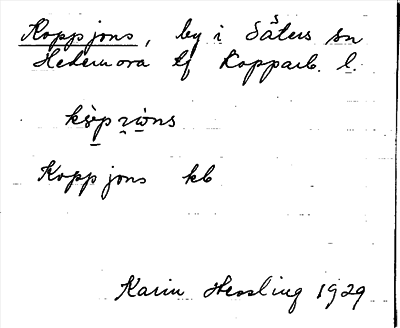 Koppsjons, by i Säters sn
Hedemora tf Kopparb. l.
Kopp jons kb
Karin Hessling 1929